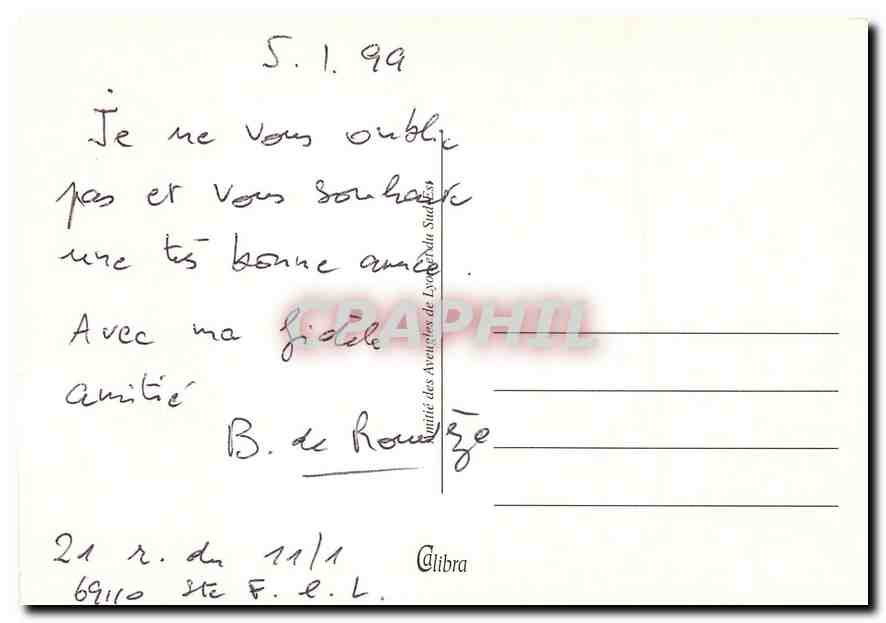 5.1.99
Je ne vous oublie
pas et vous souhaite
une très bonne année.
Avec ma fidèle
amitié
B. de
21 r. du 11/1
69110 Ste F. l. L.
Amitié des Aveugles de Lyon et du Sud-Est
CPAPHIL
Calibra